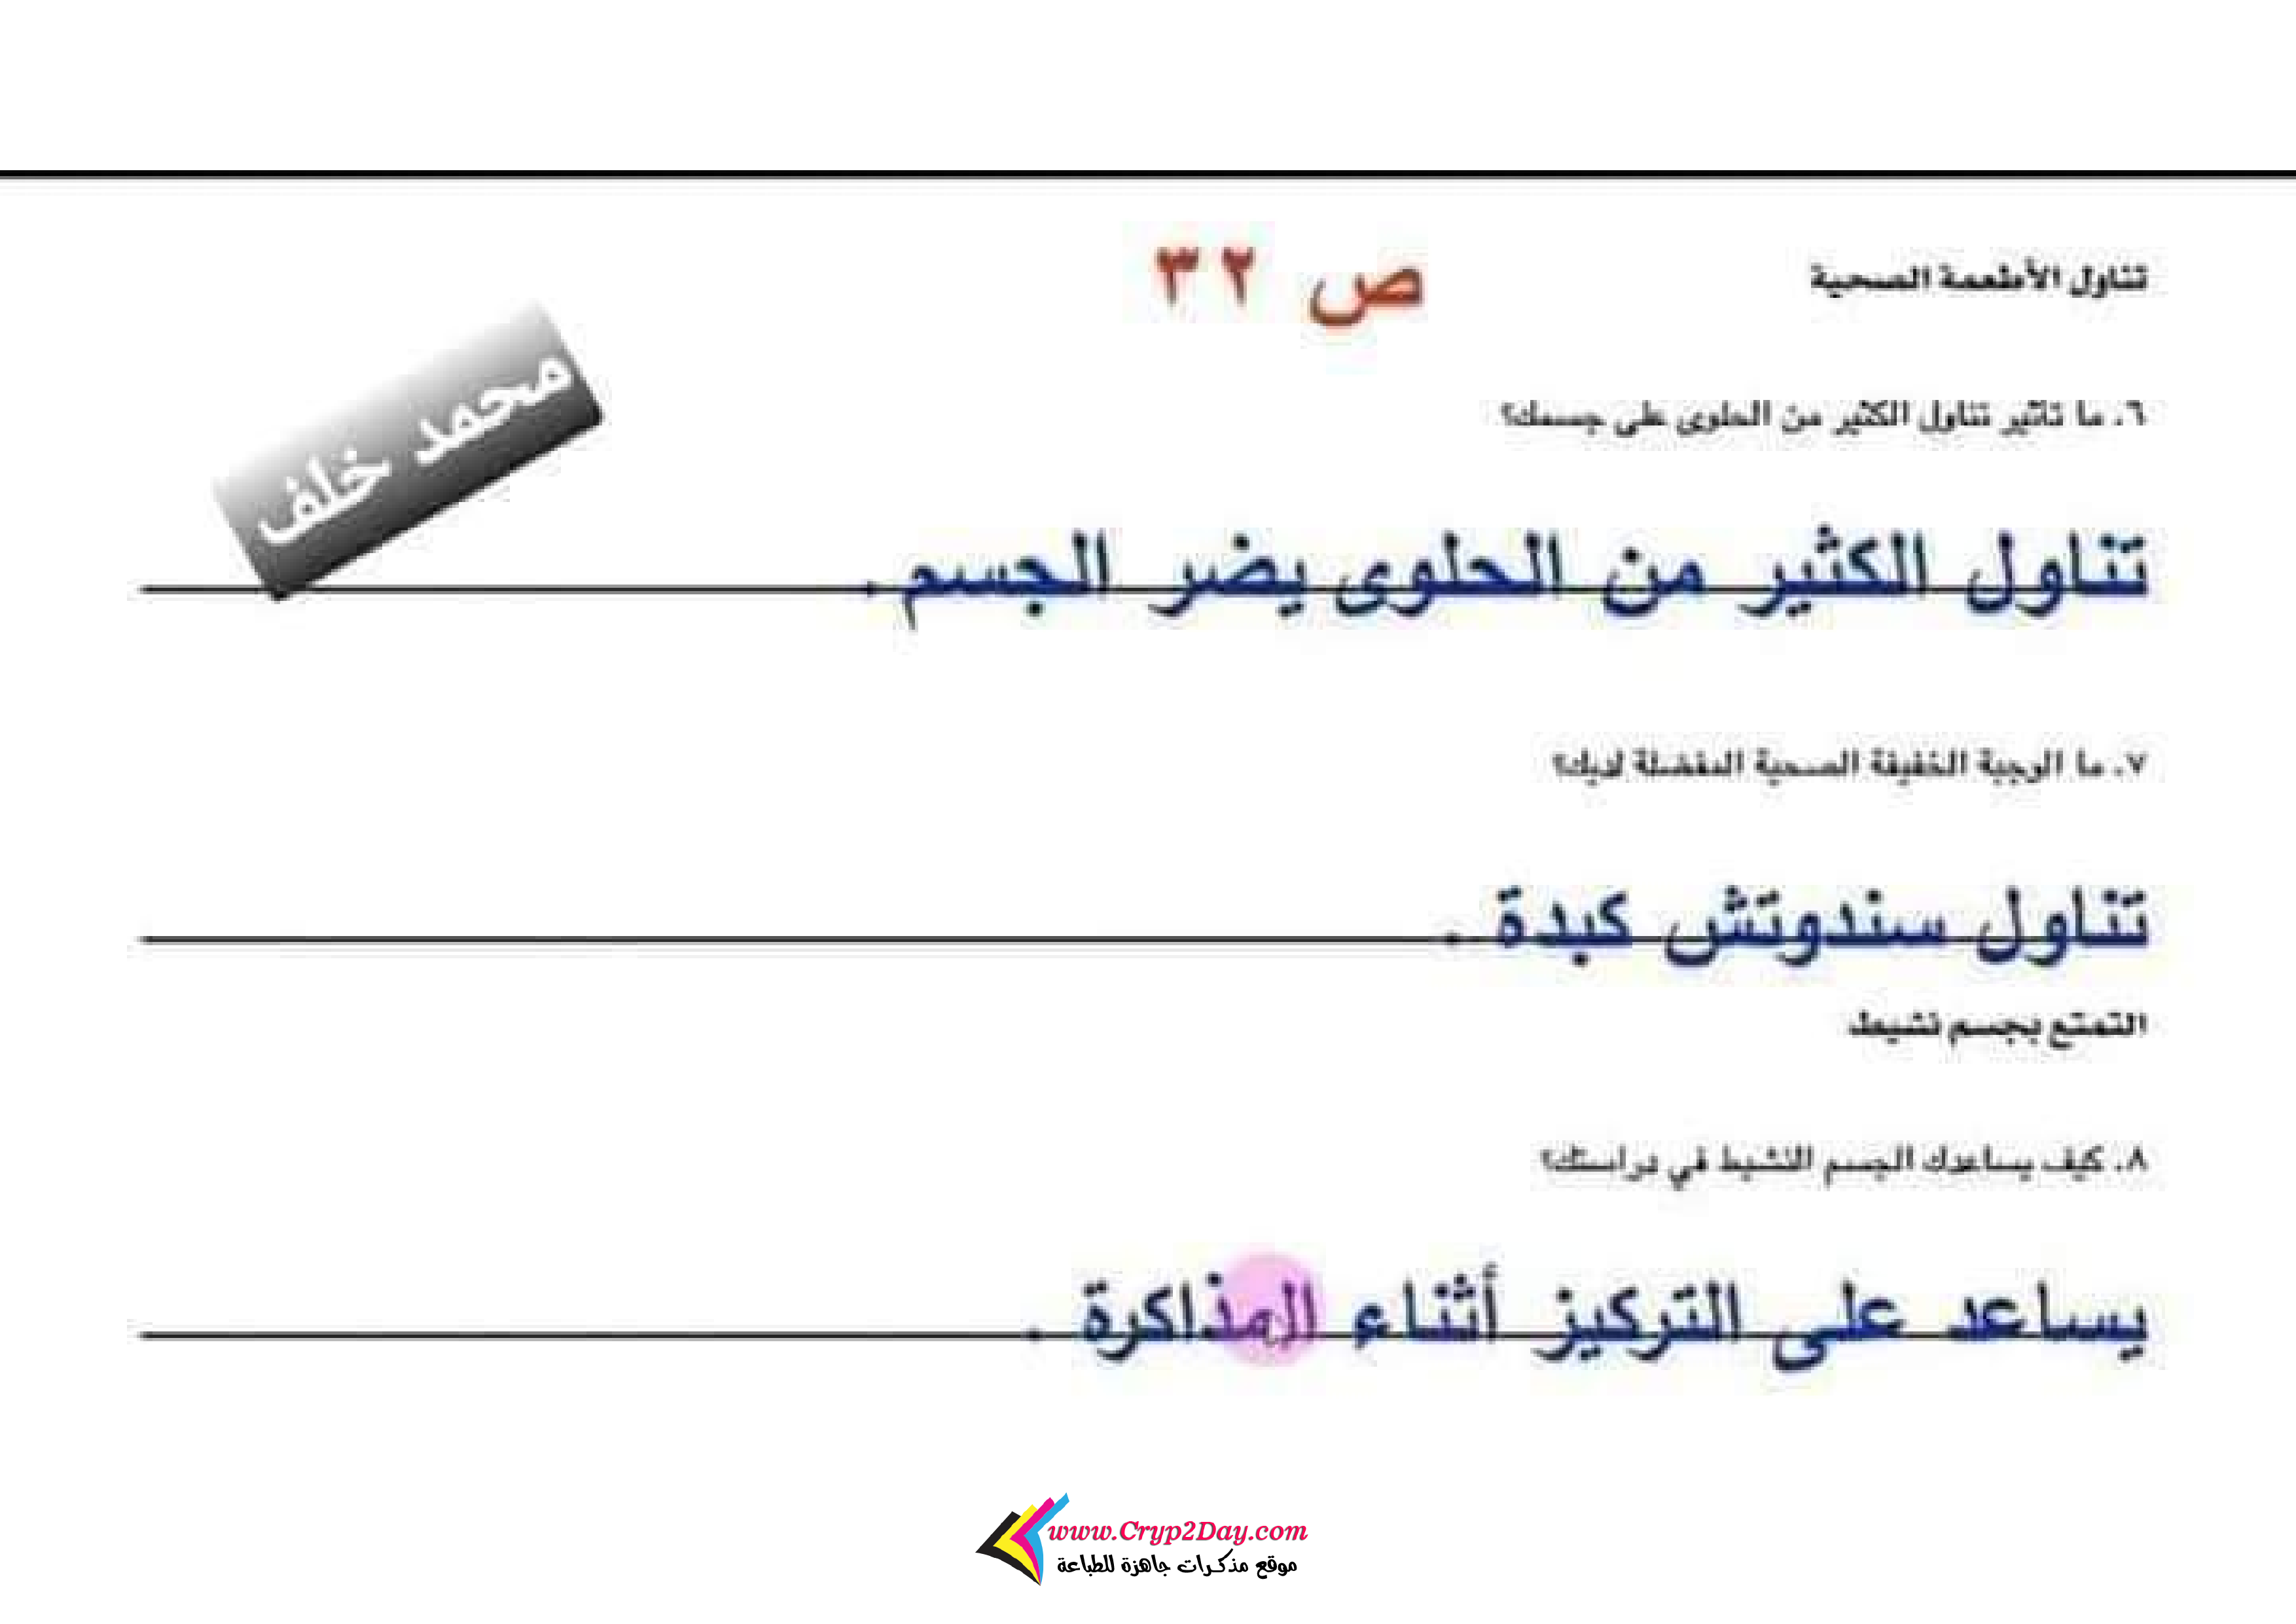 ص ٣٢
تناول الأطعمة الصحية
محمد خلف
٦. ما تأثير تناول الكثير من الحلوى على جسمك؟
تناول الكثير من الحلوى يضر الجسم .
٧. ما الوجبة الخفيفة الصحية المفضلة لديك؟
تناول سندوتش كبدة .
التمتع بجسم نشيط
٨. كيف يساعدك الجسم النشيط في دراستك؟
يساعد على التركيز أثناء المذاكرة .
www.Cryp2Day.com
موقع مذكرات جاهزة للطباعة